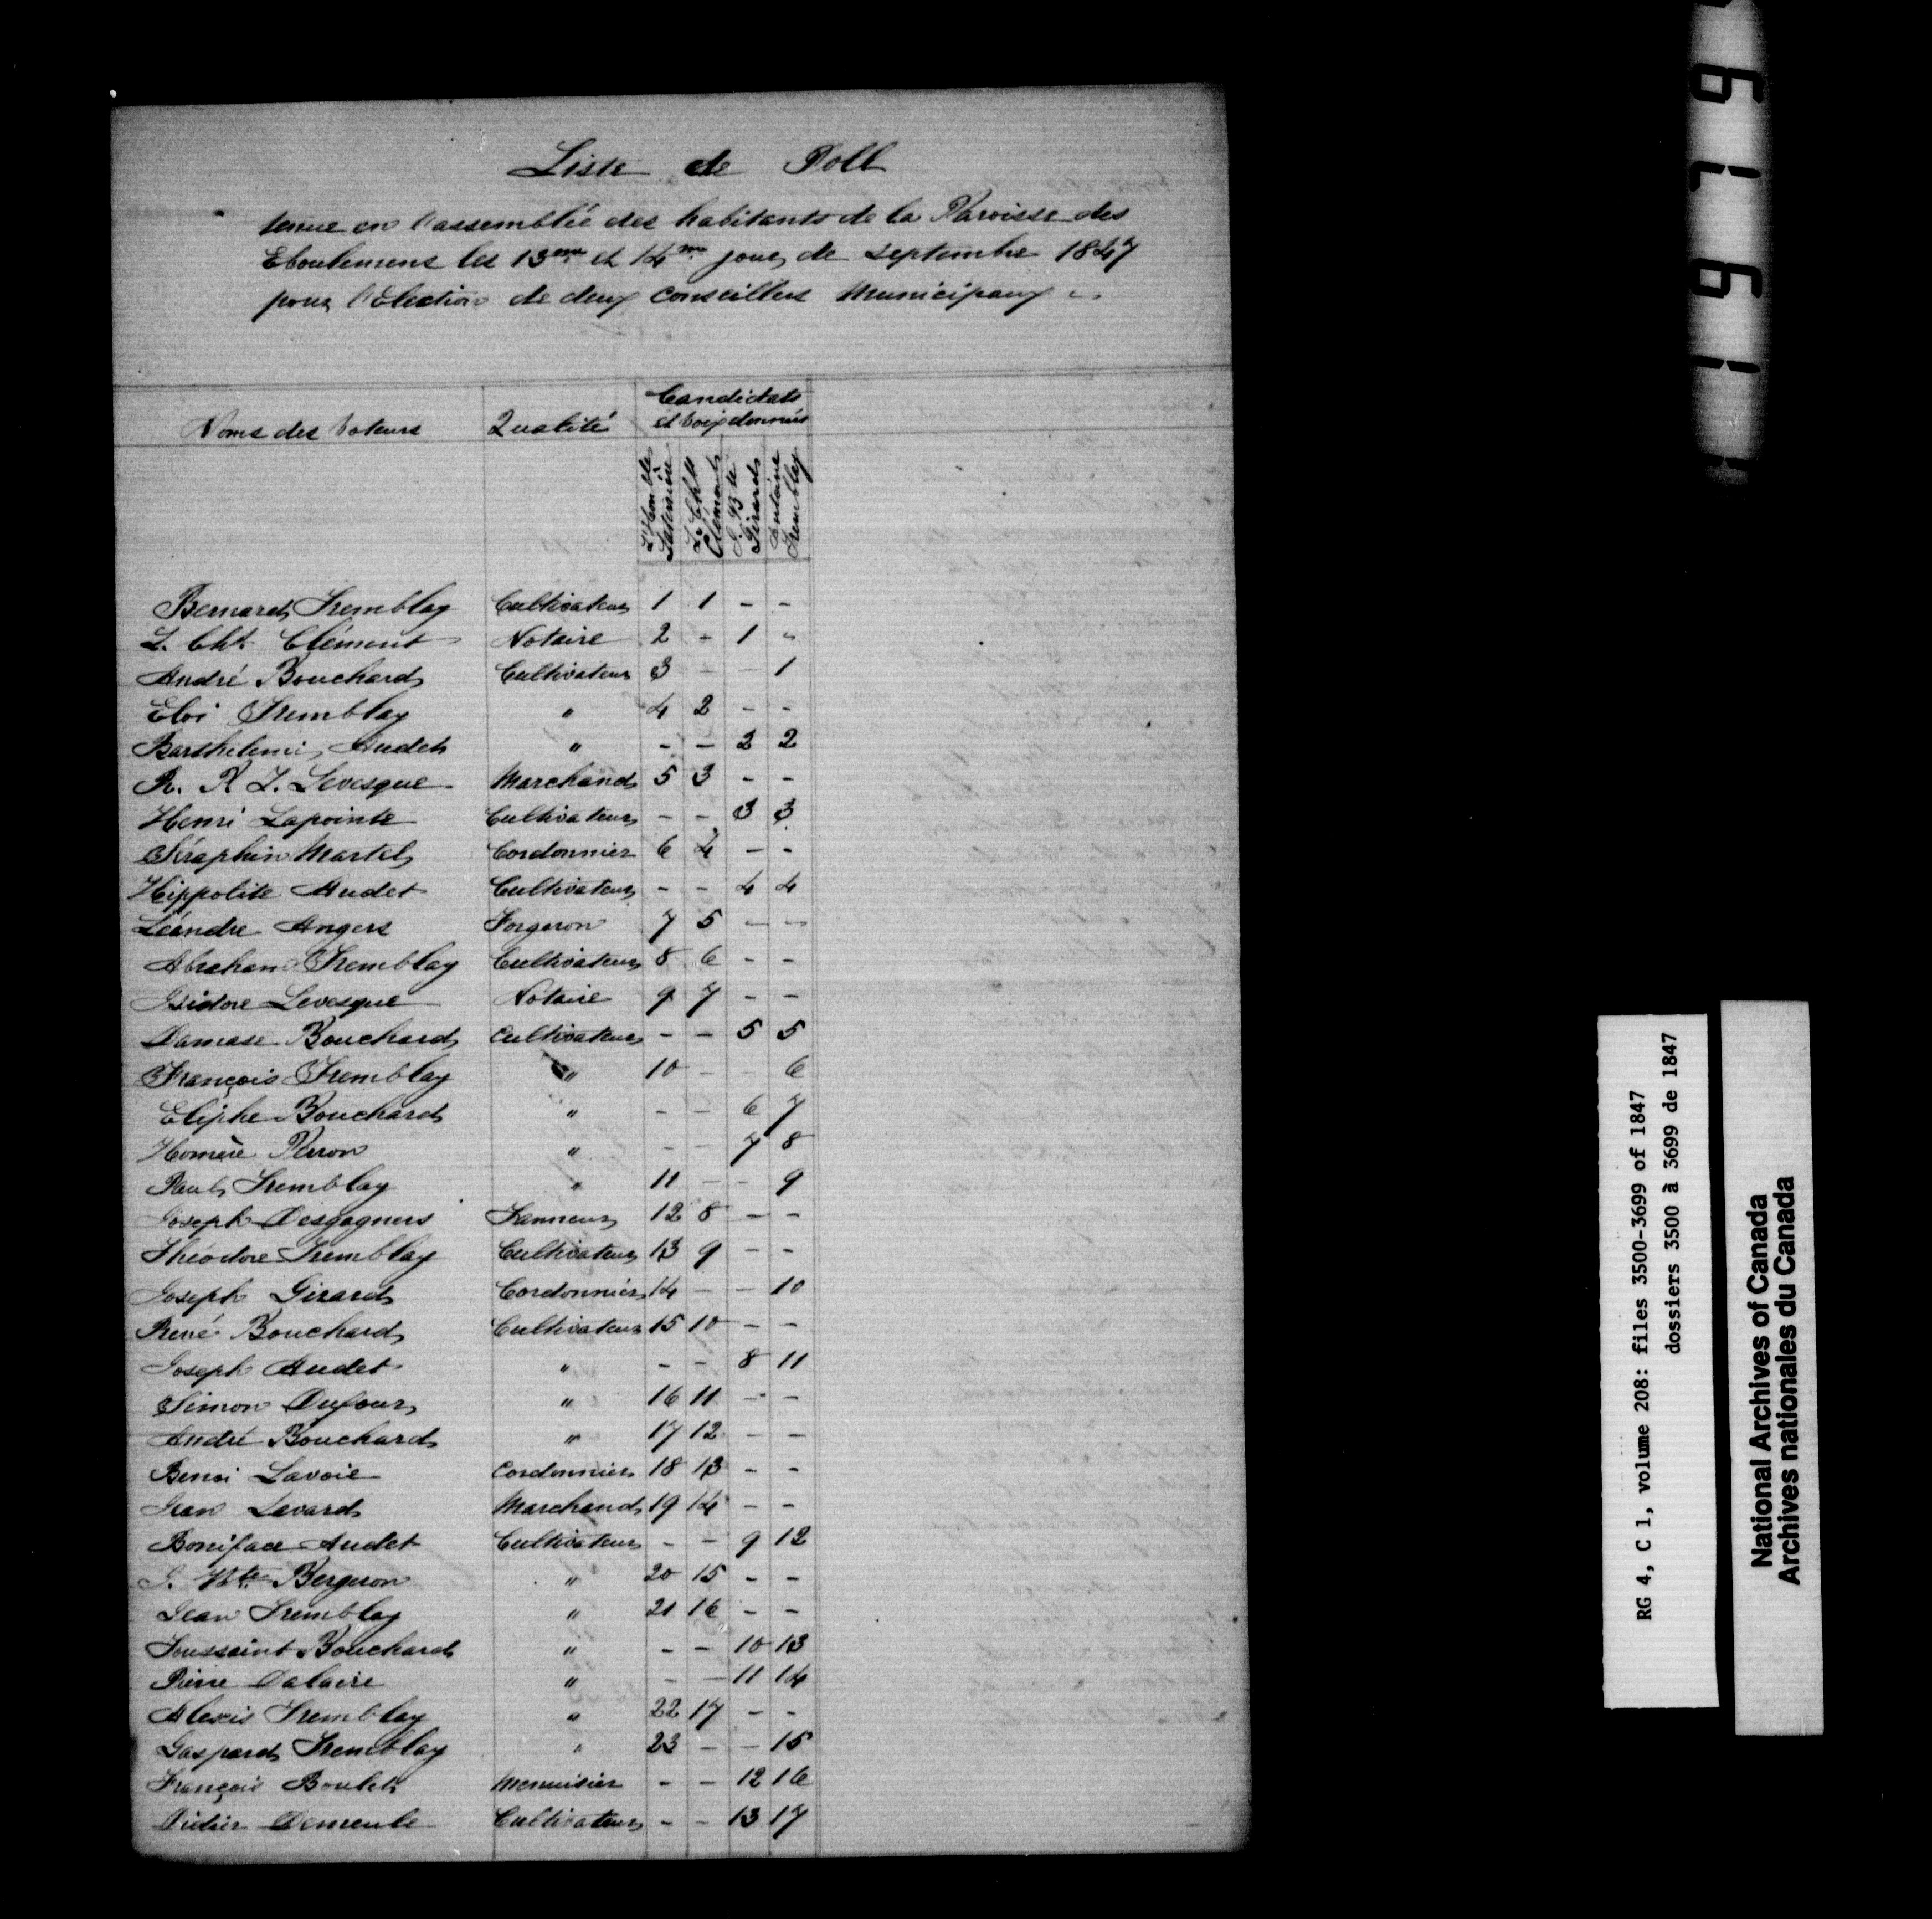 Liste de Poll
tenue en l'assemblée des habitants de la Paroisse des
Eboulemens les 13me et 14me jour de septembre 1847
pour l'Election de deux conseillers Municipaux
Noms des Voteurs Qualité Candidats
et voix donnés
L'Honble Laterrière
L. Chs Clément
J. Bte Girard
Antoine Tremblay
Bernard Tremblay Cultivateur 1 1 - -
L. Chs Clément Notaire 2 - 1 -
André Bouchard Cultivateur 3 - - 1
Eloi Tremblay " 4 2 - -
Barthelemi Audet " - - 2 2
R. P. L. Levesque Marchand 5 3 - -
Henri Lapointe Cultivateur - - 3 3
Séraphin Martel Cordonnier 6 4 - -
Hippolite Audet Cultivateur - - 4 4
Léandre Angers Forgeron 7 5 - -
Abraham Tremblay Cultivateur 8 6 - -
Isidore Levesque Notaire 9 7 - -
Damase Bouchard Cultivateur - - 5 5
François Tremblay " 10 - - 6
Eliphe Bouchard " - - 6 7
Homère Perron " - - 7 8
Paul Tremblay " 11 - - 9
Joseph Desgagners Tanneur 12 8 - -
Théodore Tremblay Cultivateur 13 9 - -
Joseph Girard Cordonnier 14 - - 10
René Bouchard Cultivateur 15 10 - -
Joseph Audet " - - 8 11
Simon Dufour " 16 11 - -
André Bouchard " 17 12 - -
Benoi Lavoie Cordonnier 18 13 - -
Jean Lavard Marchand 19 14 - -
Boniface Audet Cultivateur - - 9 12
J. Bte Bergeron " 20 15 - -
Jean Tremblay " 21 16 - -
Toussaint Bouchard " - - 10 13
Pierre Dalaire " - - 11 14
Alexis Tremblay " 22 17 - -
Gaspard Tremblay " 23 - - 15
François Boulet Menuisier - - 12 16
Didier Demeule Cultivateur - - 13 17
RG 4, C 1, volume 208: files 3500-3699 of 1847
dossiers 3500 à 3699 de 1847
National Archives of Canada
Archives nationales du Canada